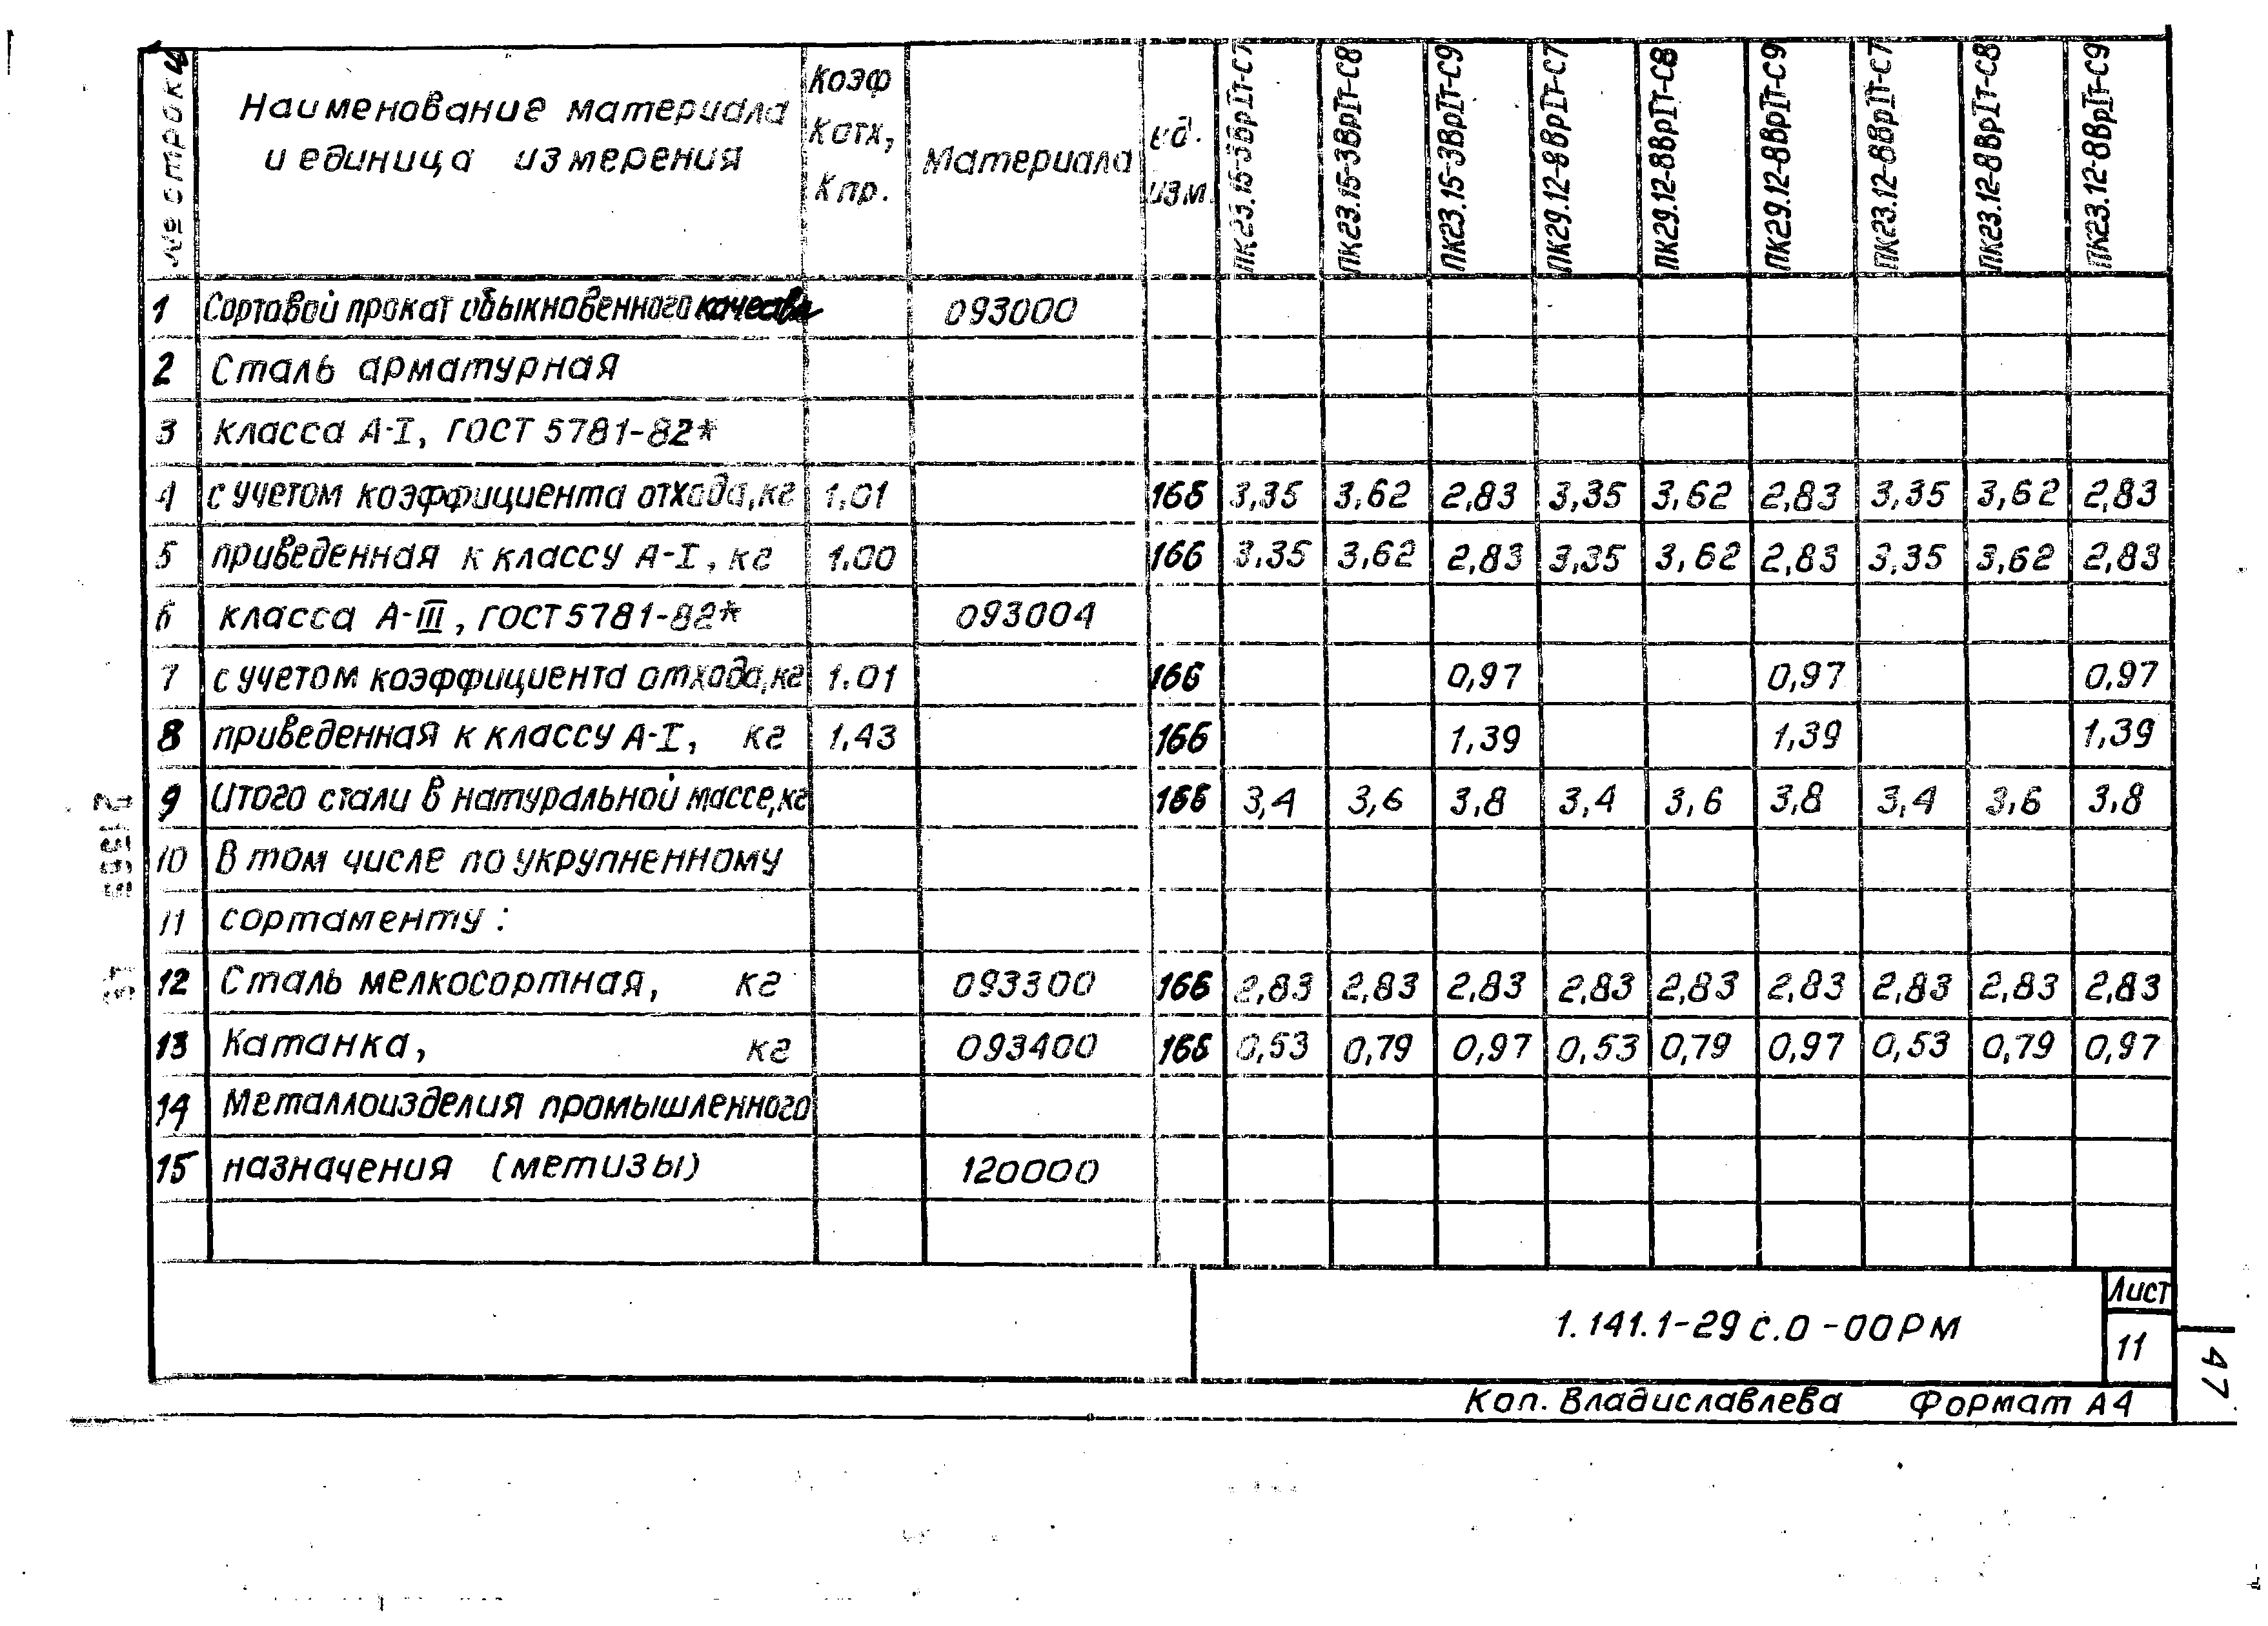 № строки
Наименование материала
и единица измерения
Коэф
Котх,
Кпр.
Материала
ед.
изм.
ПК23.15-3ВрIIт-С7
ПК23.15-3ВрIIт-С8
ПК23.15-3ВрIIт-С9
ПК29.12-8ВрIIт-С7
ПК29.12-8ВрIIт-С8
ПК29.12-8ВрIIт-С9
ПК23.12-8ВрIIт-С7
ПК23.12-8ВрIIт-С8
ПК23.12-8ВрIIт-С9
1 Сортовой прокат обыкновенного качества 093000
2 Сталь арматурная
3 класса А-I, ГОСТ 5781-82*
4 с учетом коэффициента отхода,кг 1.01 166 3,35 3,62 2,83 3,35 3,62 2,83 3,35 3,62 2,83
5 приведенная к классу А-I, кг 1.00 166 3,35 3,62 2,83 3,35 3,62 2,83 3,35 3,62 2,83
6 класса А-III, ГОСТ 5781-82* 093004
7 с учетом коэффициента отхода,кг 1.01 166 0,97 0,97 0,97
8 приведенная к классу А-I, кг 1,43 166 1,39 1,39 1,39
9 Итого стали в натуральной массе,кг 166 3,4 3,6 3,8 3,4 3,6 3,8 3,4 3,6 3,8
10 В том числе по укрупненному
11 сортаменту:
12 Сталь мелкосортная, кг 093300 166 2,83 2,83 2,83 2,83 2,83 2,83 2,83 2,83 2,83
13 Катанка, кг 093400 166 0,53 0,79 0,97 0,53 0,79 0,97 0,53 0,79 0,97
14 Металлоизделия промышленного
15 назначения (метизы) 120000
1.141.1-29с.0-00РМ
Лист
11
47
Коп. Владиславлева Формат А4